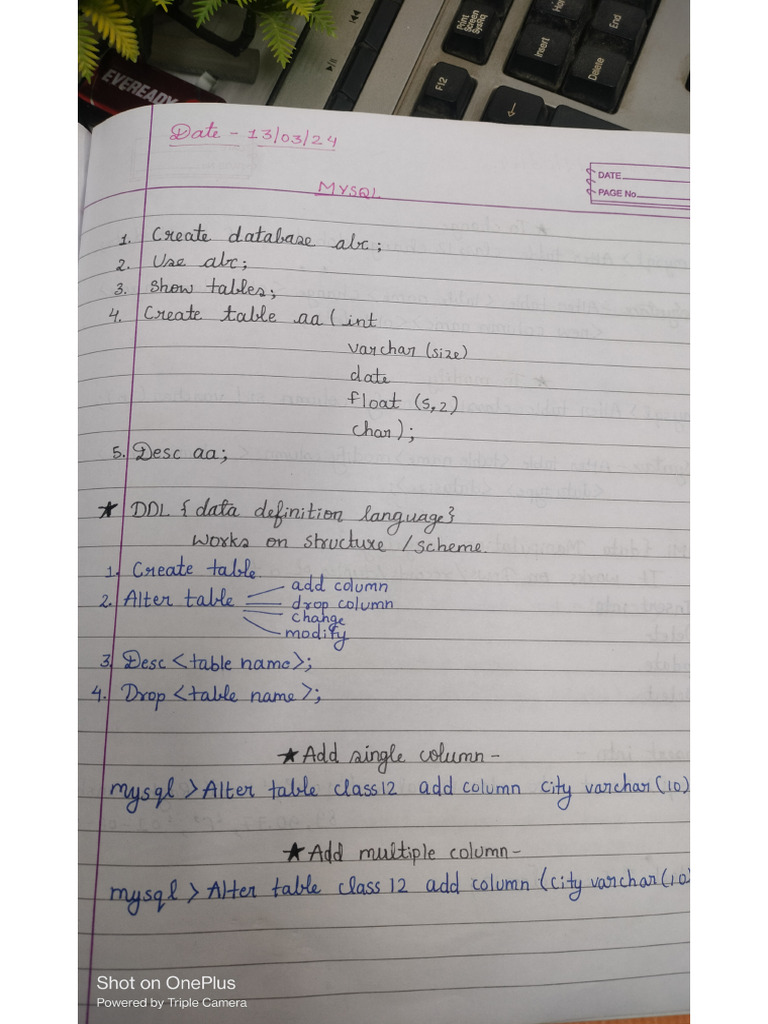 Print
Screen
SysRq
Insert
End
Delete
F12
EVEREADY
Date - 13/03/24
DATE
PAGE No.
MYSQL
1. Create database abc;
2. Use abc;
3. Show tables;
4. Create table aa (int
varchar (size)
date
float (5,2)
char);
5. Desc aa;
★ DDL {data definition language}
works on structure / scheme.
1. Create table
2. Alter table
add column
drop column
change
modify
3. Desc <table name>;
4. Drop <table name>;
★ Add single column -
mysql > Alter table class12 add column city varchar(10)
★ Add multiple column -
mysql > Alter table class 12 add column (city varchar(10
Shot on OnePlus
Powered by Triple Camera